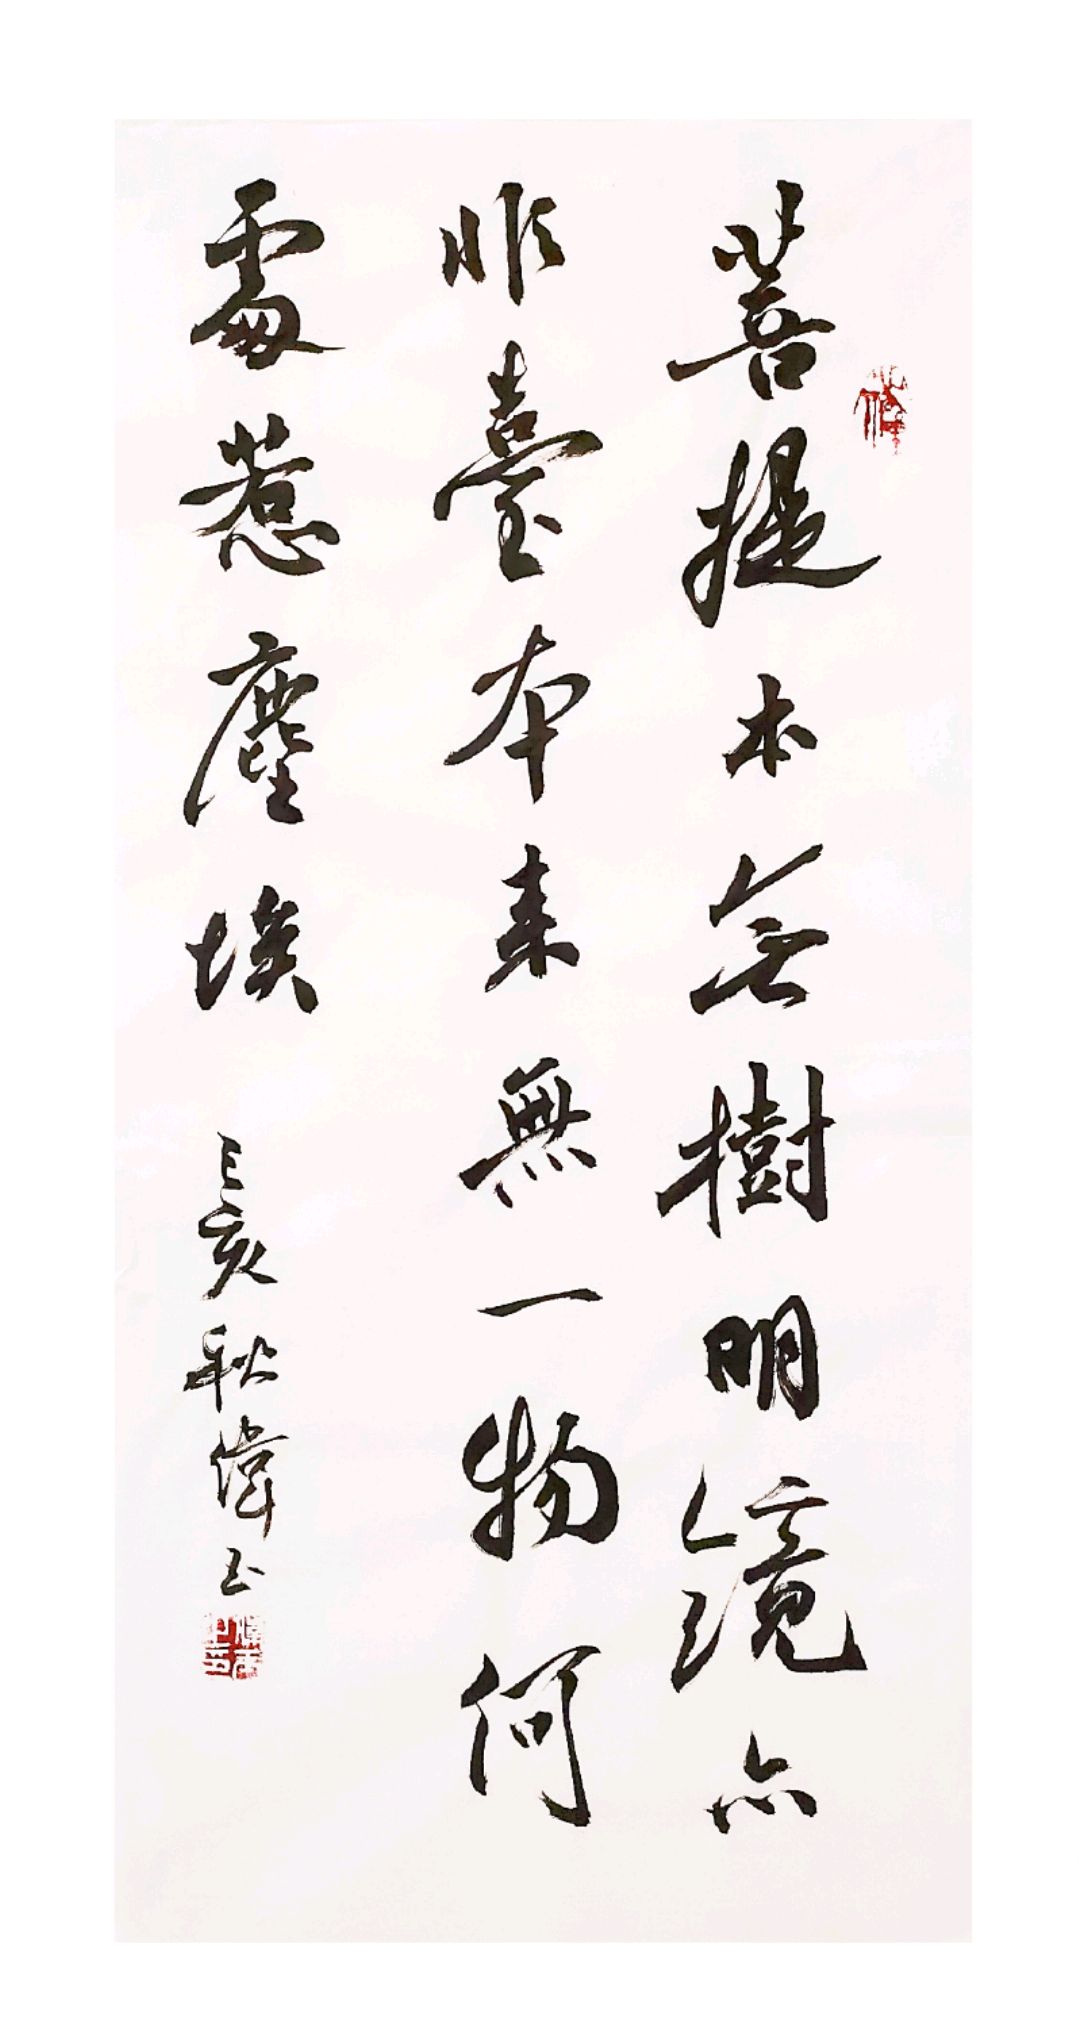 菩提本無樹明鏡亦
非臺本来無一物何
處惹塵埃
己亥秋偉玉